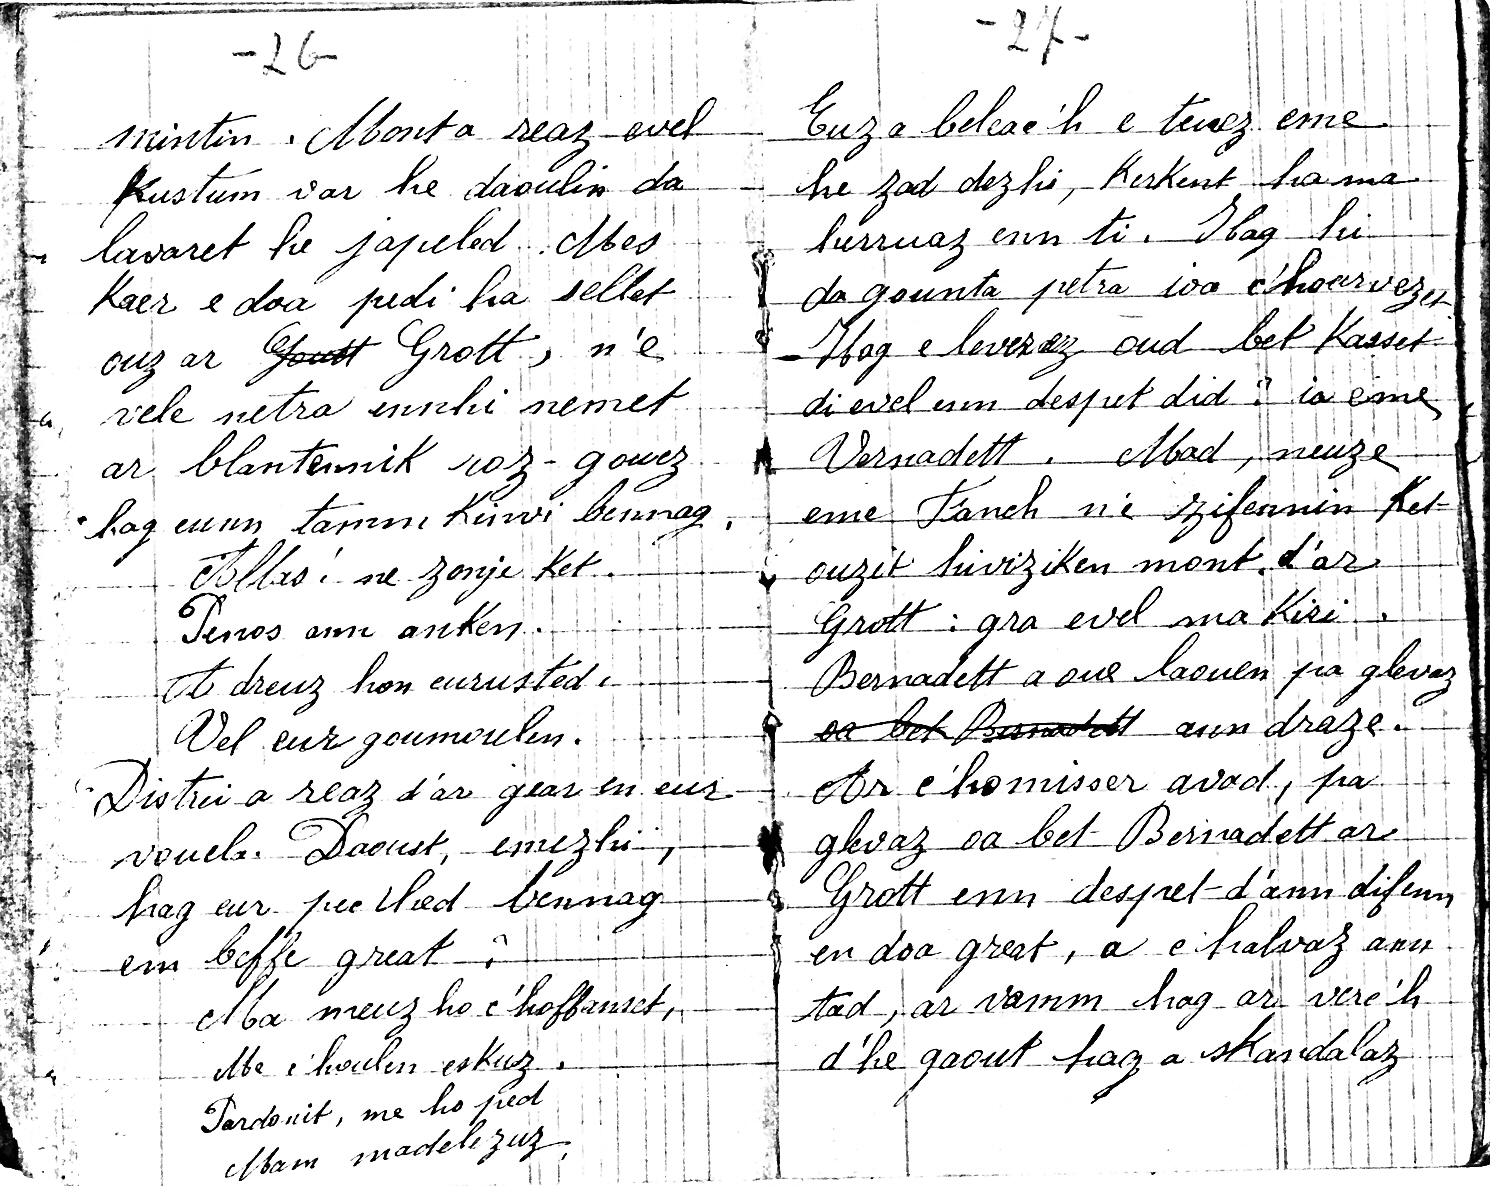 -26-
mintin. Mont a reaz evel
Kustum var he daoulin da
lavaret he japeled. Mes
Kaer e doa pedi ha sellet
ouz ar Groutt Grott, n'e
vele netra ennhi nemet
ar blantennik roz-gouez
hag eunn tamm Kinvi bennag.
Allas! ne zonje ket.
Penos ann anken.
A dreuz hon eurusted.
Vel eur goumoulen.
Distrei a reaz d'ar gear en eur
vouela. Daoust, emezhi,
hag eur pec'hed bennag
em beffe great ?
Ma meuz ho c'hoffanset,
Me c'houlen eskuz.
Pardonit, me ho ped
Mam madelezuz,
-27-
Euz a beleac'h e teuez eme
he zad dezhi, Kerkent ha ma
herruaz enn ti. Hag hi
da gounta petra ioa c'hoarvezet
-Hag e leverez oud bet Kasset
di evel enn despet did ? ia eme
Vernadett. Mad, neuze
eme Fanch n'e zifennin Ket
ouzit hiviziken mont d'ar
Grott : gra evel ma Kiri.
Bernadett a oue laouen pa glevaz
oa bet Bernadett ann draze.
Ar c'homisser avad, pa
glevaz oa bet Bernadett ar
Grott enn despet d'ann difenn
en doa great, a c'halvaz ann
tad, ar vamm hag ar verc'h
d'he gaout hag a skandalaz